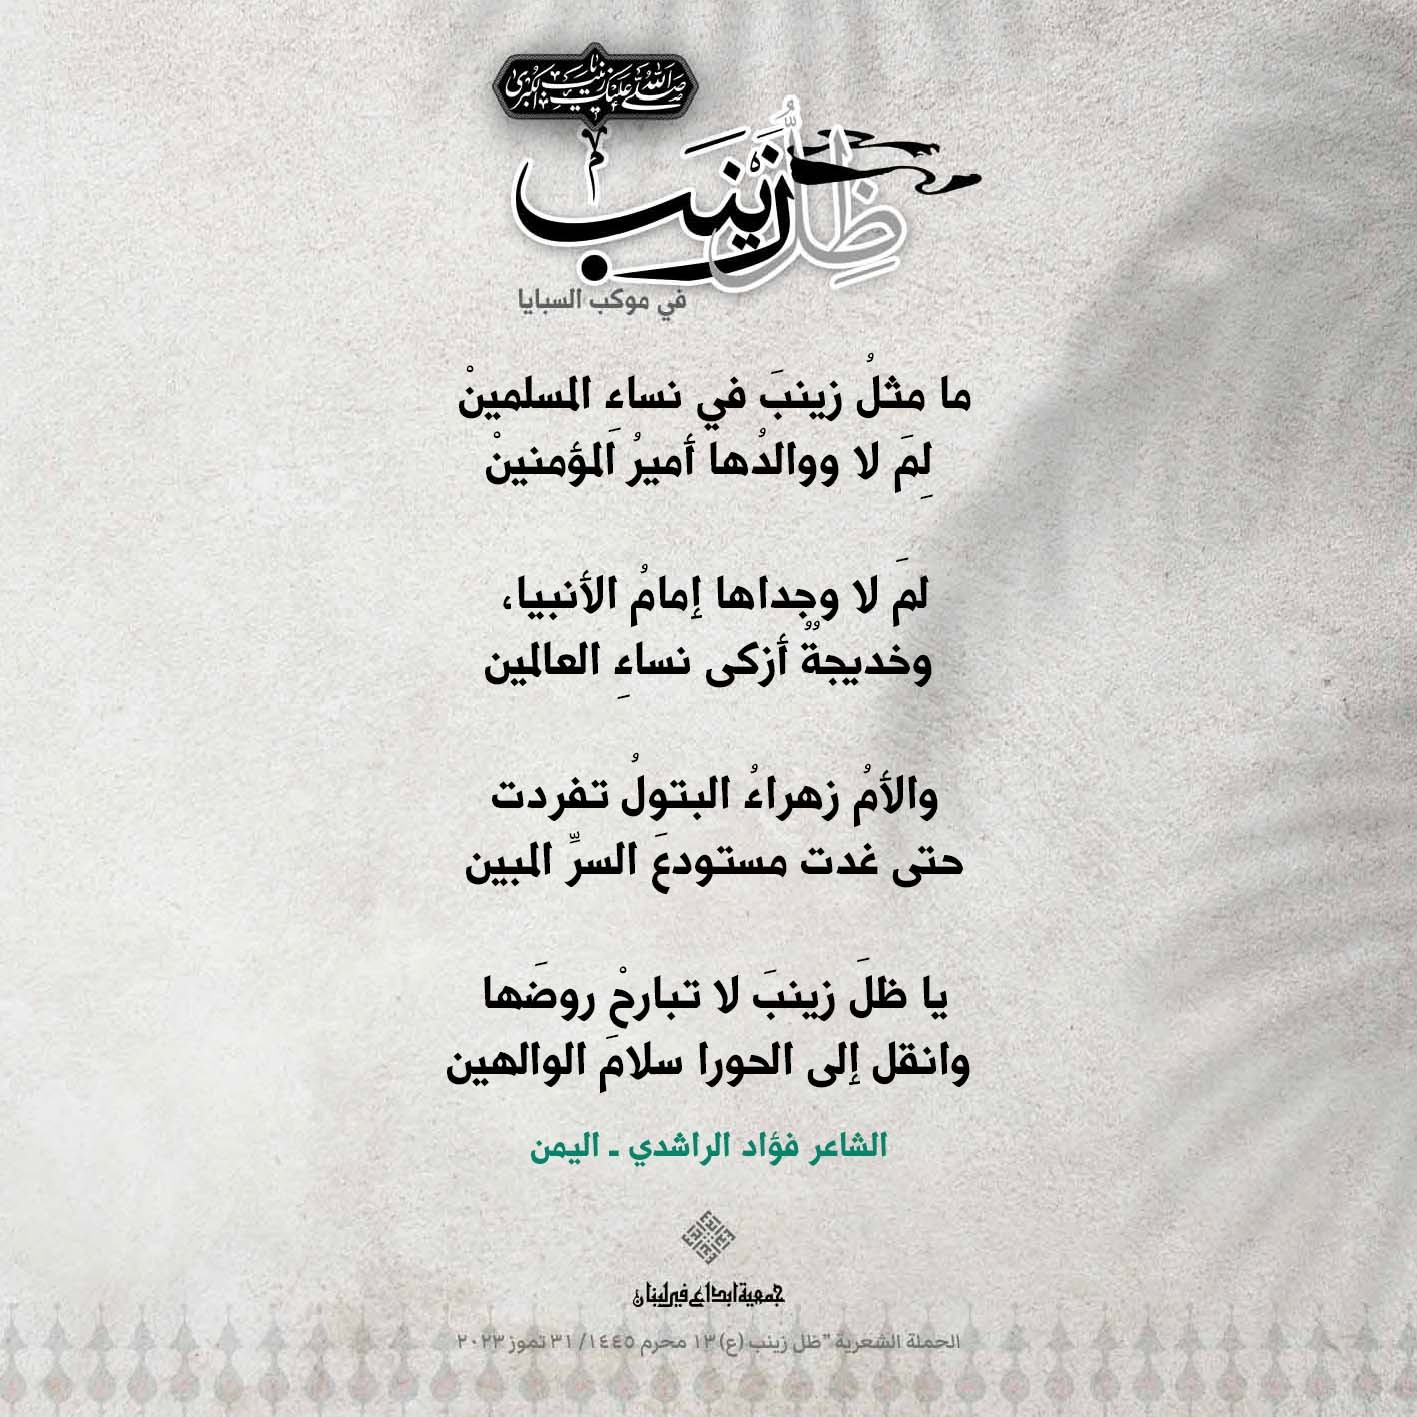 صلى الله عليك يا زينب الكبرى
ظِلُّ زَيْنَب
في موكب السبايا
ما مثلُ زينبَ في نساءِ المسلمينْ
لِمَ لا ووالدُها أميرُ المؤمنينْ
لمَ لا وجداها إمامُ الأنبيا،
وخديجةٌ أزكى نساءِ العالمين
والأمُ زهراءُ البتولُ تفردت
حتى غدت مستودعَ السرِّ المبين
يا ظلَ زينبَ لا تبارحْ روضَها
وانقل إلى الحورا سلامَ الوالهين
الشاعر فؤاد الراشدي ـ اليمن
جمعية ابداع في لبنان
الحملة الشعرية "ظل زينب (ع) ١٣ محرم ١٤٤٥/ ٣١ تموز ٢٠٢٣